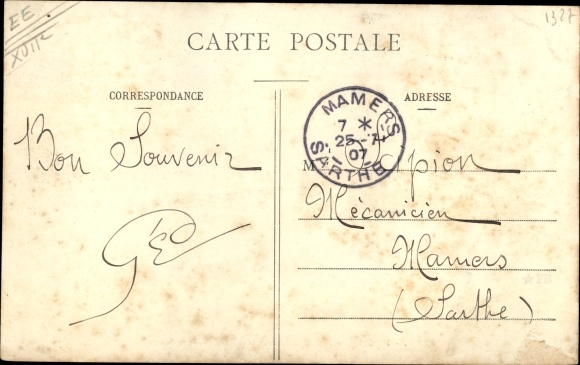 EE
XVIIe
1327
CARTE POSTALE
CORRESPONDANCE
ADRESSE
MAMERS
7 *
25 - 7
07
SARTHE
Bon Souvenir
M
Mécanicien
Mamers
(Sarthe)